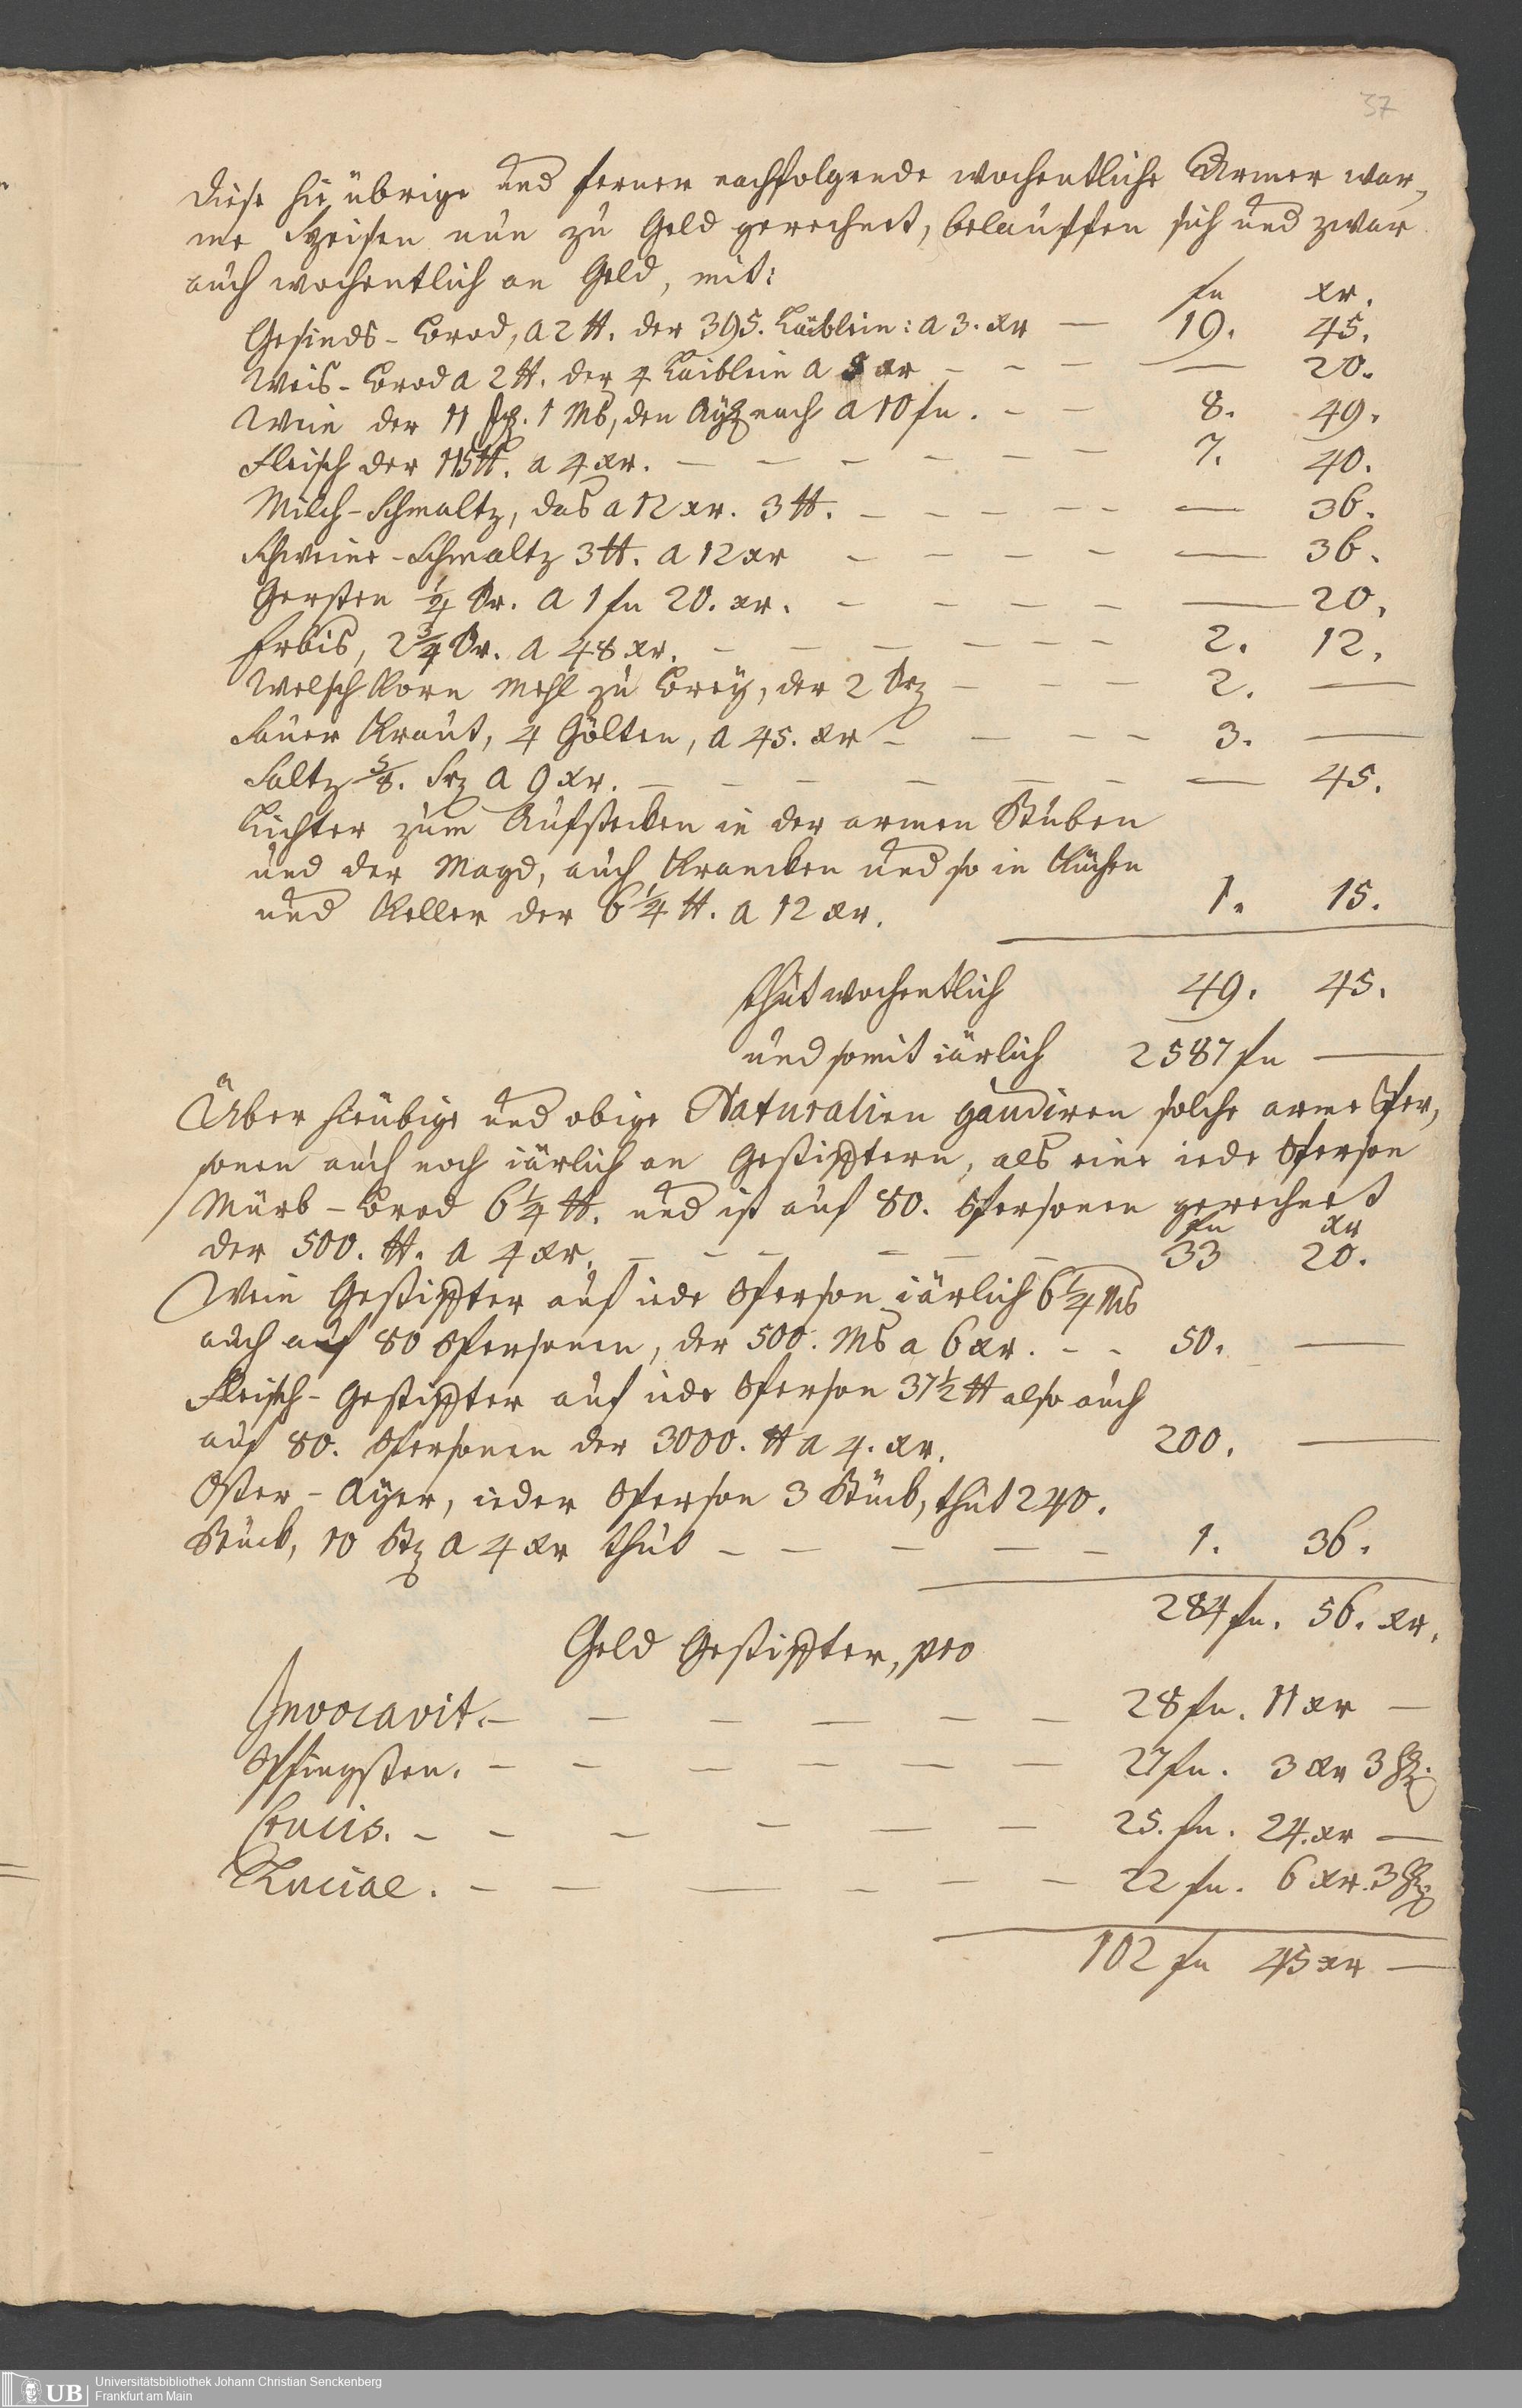 37
Diese hie übrige und ferner nachfolgende wochentliche Armer war„
me Speisen nun zu Geld gerechnet, belauffen sich und zwar
auch wochentlich an Geld, mit:
fn xr.
Gesinds-Brod, a 2 ℔. der 395. Laiblein: a 3. xr — 19. 45.
Weis-Brod a 2 ℔. der 4 Laiblein a 5 xr - - - — 20.
Wein der 11 1 Ms, den nach a 10 fn. - - 8. 49.
Fleisch der 115 ℔. a 4 xr. - - - - - - 7. 40.
Milch-Schmaltz, das a 12 xr. 3 ℔. - - - - - — 36.
Schweine-Schmaltz 3 ℔. a 12 xr - - - - — 36.
Gersten ¼ Sr. a 1 fn 20. xr. - - - - — 20.
Erbis, 2¾ Sr. a 48 xr. - - - - - - 2. 12.
Welsch Korn Mehl zu Brey, der 2 Srj - - - 2. —
Sauer Kraut, 4 Gölten, a 45. xr - - - - 3. —
Saltz 5/8. Srj a 9 xr. - - - - - - - — 45.
Liechter zum Aufstecken in der armen Stuben
und der Magd, auch Krancken und so in Kuchen
und Keller der 6¼ ℔. a 12 xr. 1. 15.
thut wochentlich 49. 45.
und somit iärlich 2587 fn —
Über hieübige und obige Naturalien gaudiren solche arme Per„
sonen auch noch iärlich an Gestifftern, als eine iede Person
Mürb-Brod 6¼ ℔. und ist auf 80. Personen gerechnet
fn xr
der 500. ℔. a 4 xr. - - - - - - 33 20.
Wein Gestiffter auf iede Person iärlich 6¼ Ms
auch auf 80 Personen, der 500. Ms a 6 xr. - - 50. —
Fleisch-Gestiffter auf iede Person 37½ ℔ also auch
auf 80. Personen der 3000. ℔ a 4. xr. 200. —
Oster-Ayer, ieder Person 3 Stück, thut 240.
Stück, 10 Stz a 4 xr thut - - - - - 1. 36.
284 fn. 56. xr.
Geld Gestiffter, pro
Invocavit. - - - - - - 28 fn. 11 xr —
Pfingsten. - - - - - - 27 fn. 3 xr 3
Crucis. - - - - - - 25. fn. 24. xr —
Luciae. - - - - - - 22 fn. 6 xr. 3
102 fn 45 xr —
UB Universitätsbibliothek Johann Christian Senckenberg
Frankfurt am Main